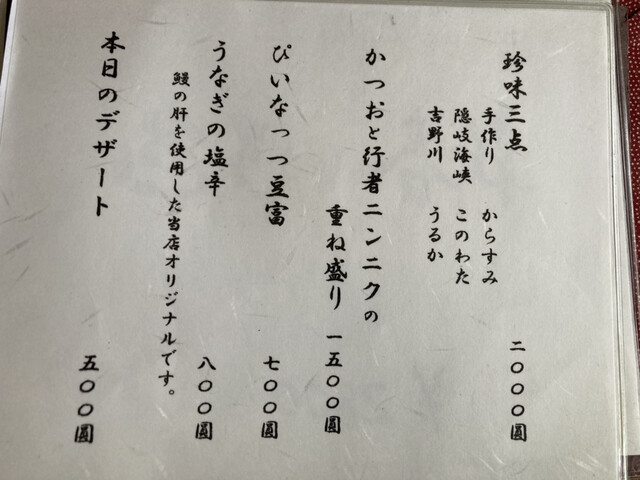 珍味三点 二〇〇〇圓
手作り からすみ
隠岐海峡 このわた
吉野川 うるか
かつおと行者ニンニクの
重ね盛り 一五〇〇圓
ぴいなっつ豆富 七〇〇圓
うなぎの塩辛 八〇〇圓
鰻の肝を使用した当店オリジナルです。
本日のデザート 五〇〇圓